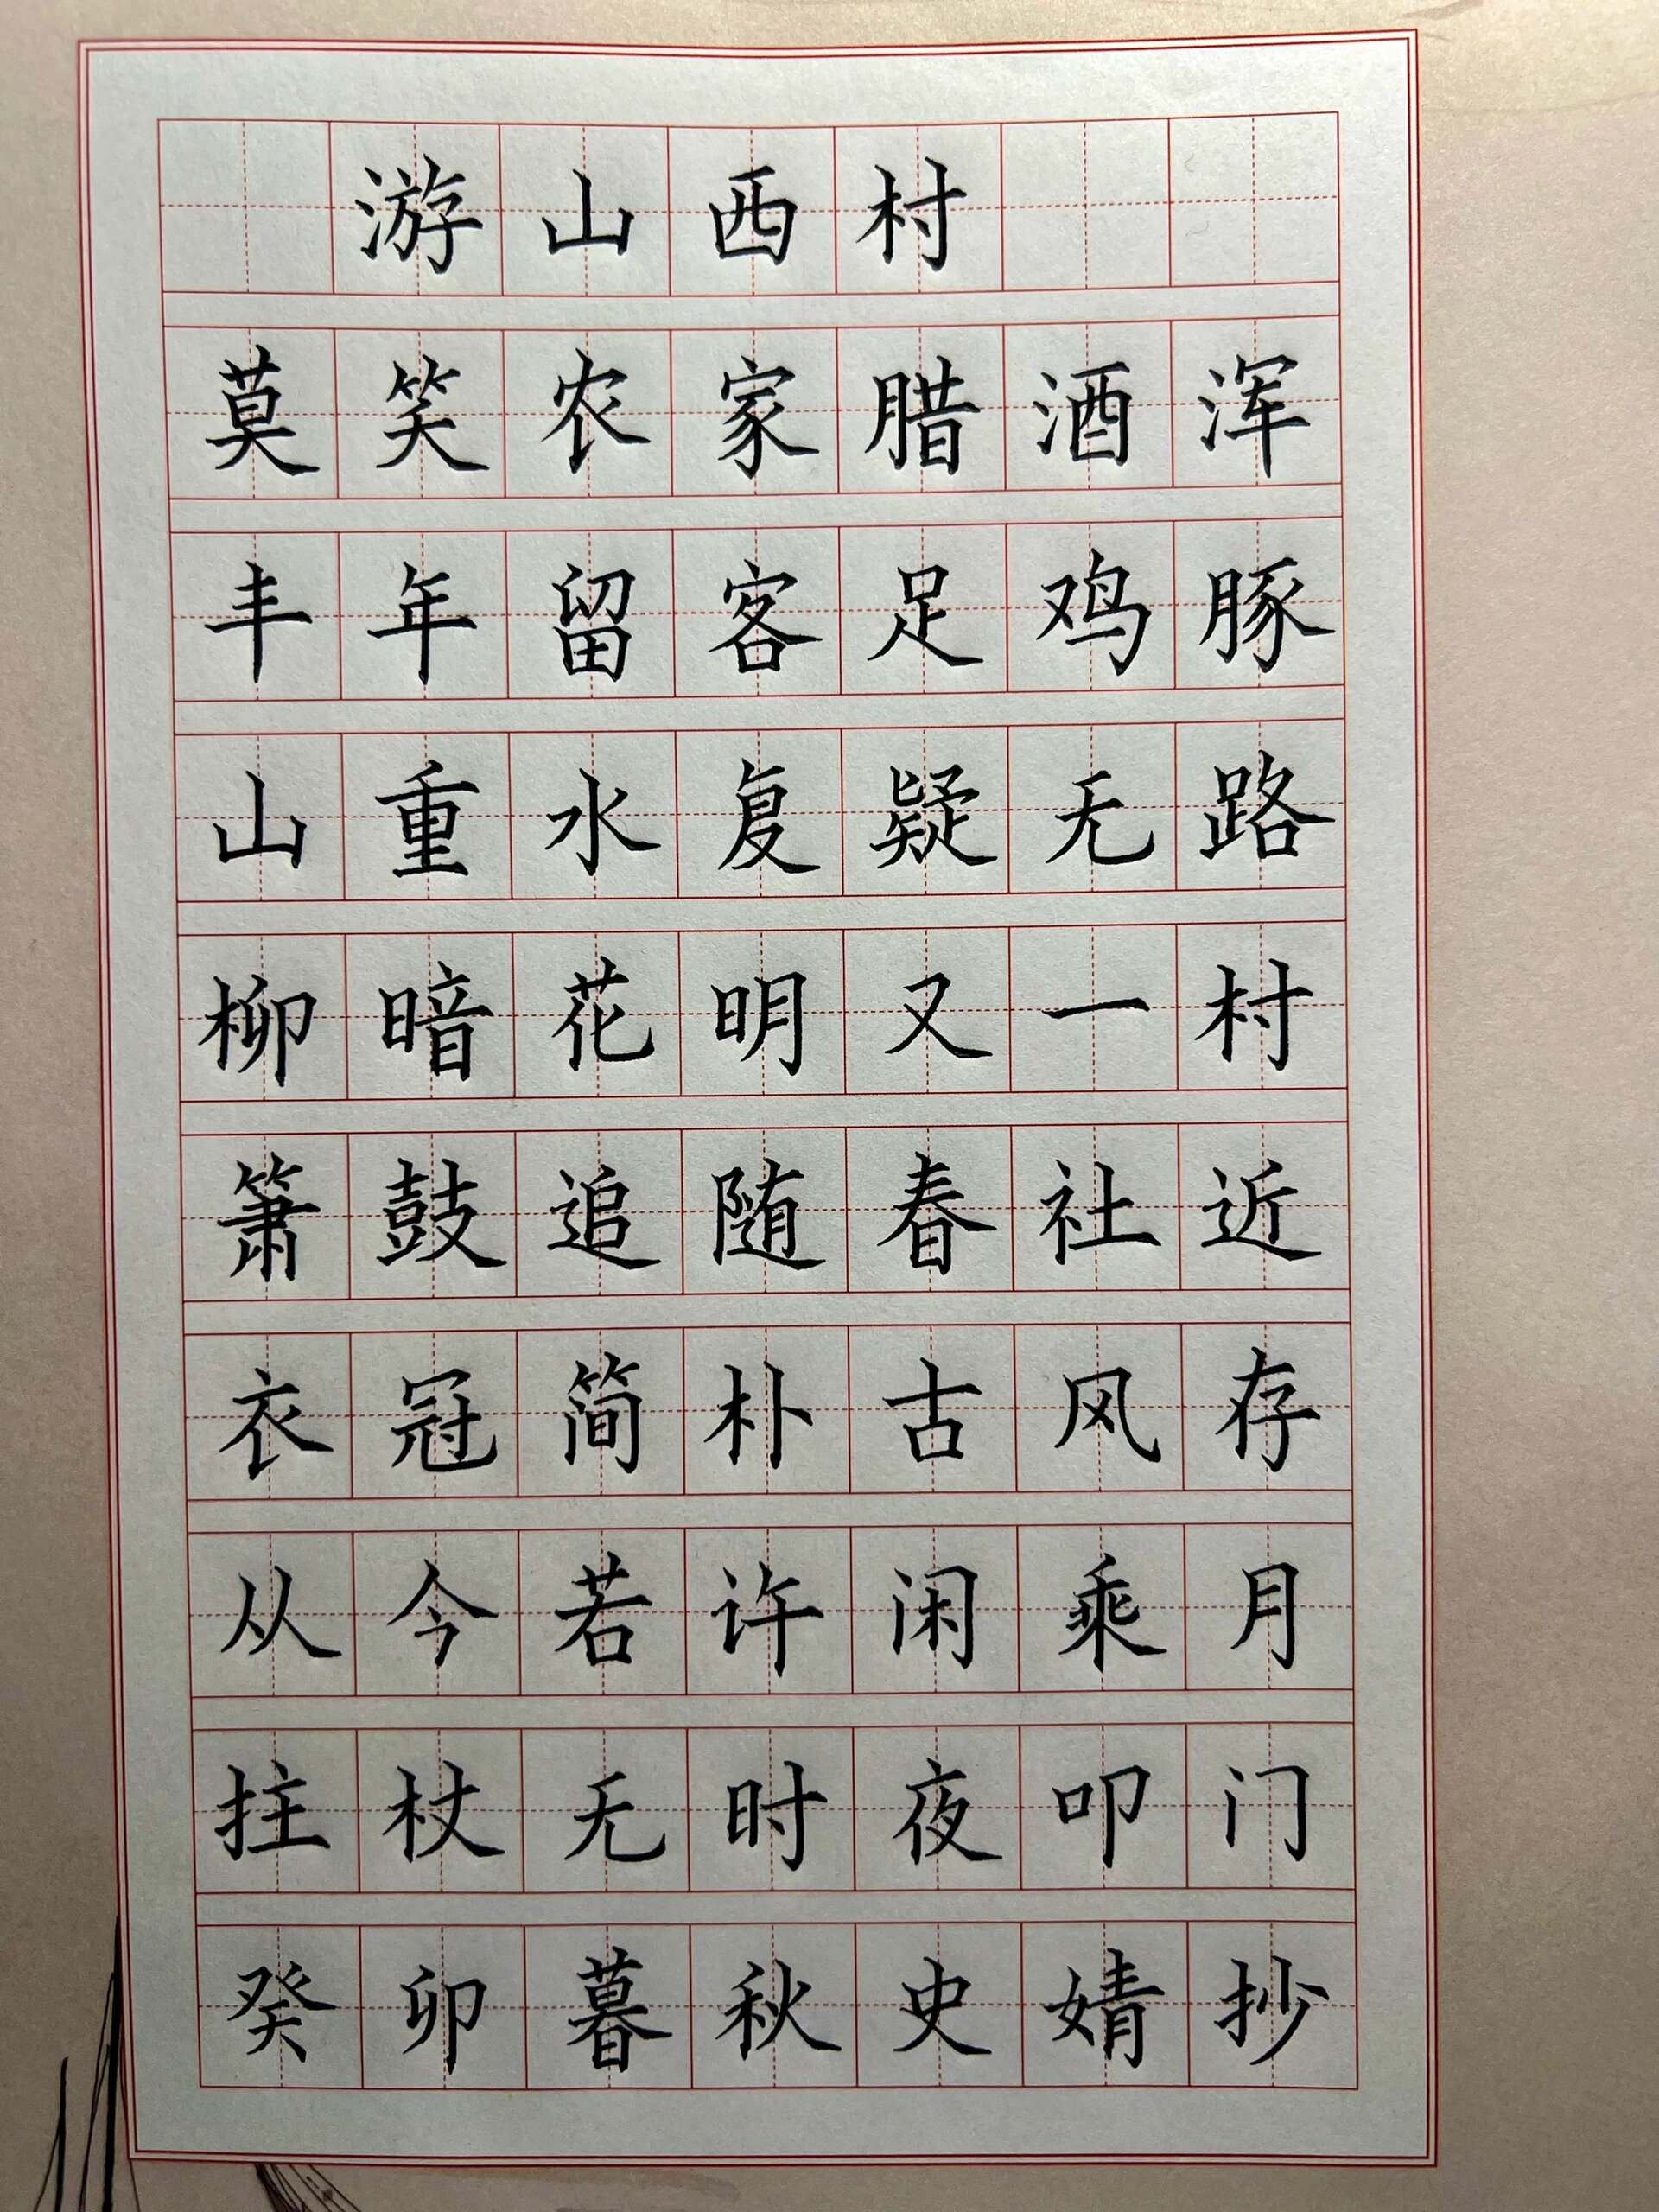 游山西村
莫笑农家腊酒浑
丰年留客足鸡豚
山重水复疑无路
柳暗花明又一村
箫鼓追随春社近
衣冠简朴古风存
从今若许闲乘月
拄杖无时夜叩门
癸卯暮秋史婧抄